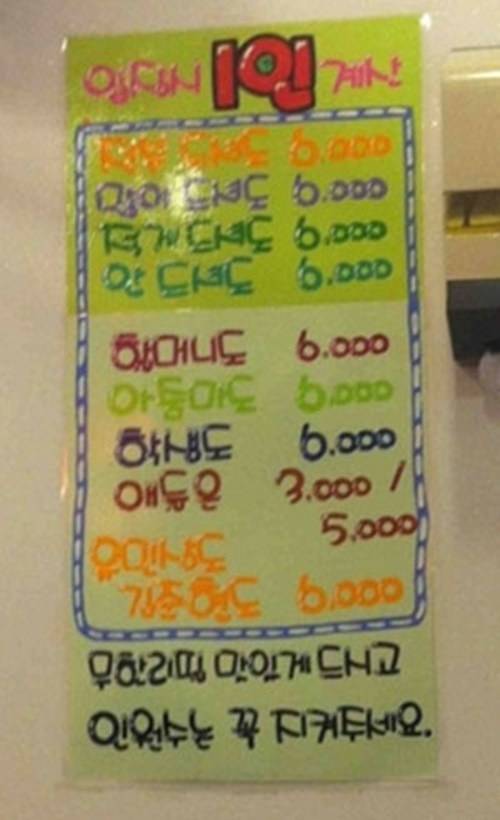 입장시 1인 계산
전부 드셔도 6.000
많이 드셔도 6.000
적게 드셔도 6.000
안 드셔도 6.000
할머니도 6.000
아줌마도 6.000
학생도 6.000
애들은 3.000 /
5.000
유민상도
김준현도 6.000
무한리필 맛있게 드시고
인원수는 꼭 지켜주세요.